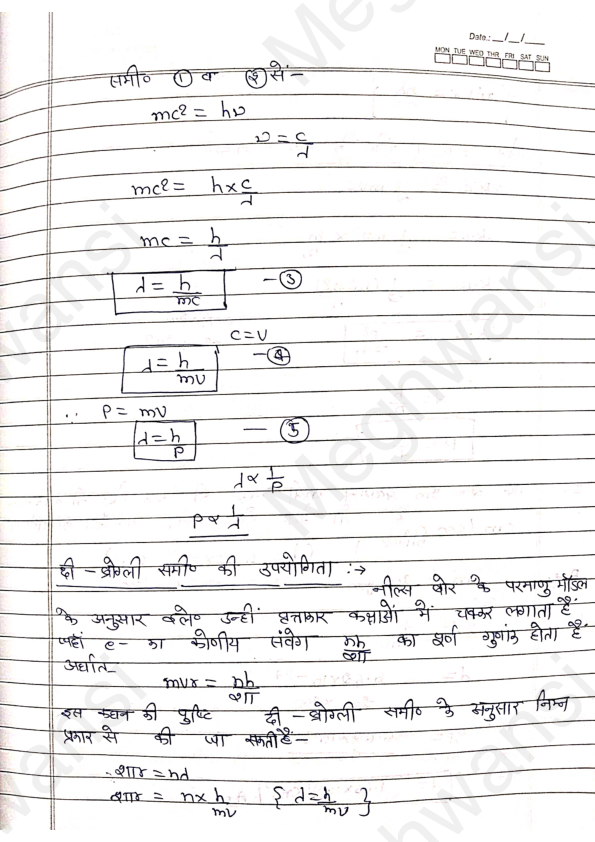 Date.: __/__/__
MON TUE WED THR FRI SAT SUN
समी० ① व ② से-
mc² = hν
ν = c/λ
mc² = h×c/λ
mc = h/λ
λ = h/mc -③
C=V
λ = h/mv -④
∴ P = mv
λ = h/P -⑤
λ ∝ 1/P
P ∝ 1/λ
दी - ब्रोग्ली समी० की उपयोगिता :→
नील्स बोर के परमाणु मॉडल
के अनुसार इले० उन्हीं वृत्ताकार कक्षाओं में चक्कर लगाता है
जहां e- का कोणीय संवेग nh/2π का पूर्ण गुणांक होता है
अर्थात-
mvr = nh/2π
इस कथन की पुष्टि दी - ब्रोग्ली समी० के अनुसार निम्न
प्रकार से की जा सकती है-
2πr = nλ
2πr = n× h/mv { λ = h/mv }
Meghwansi